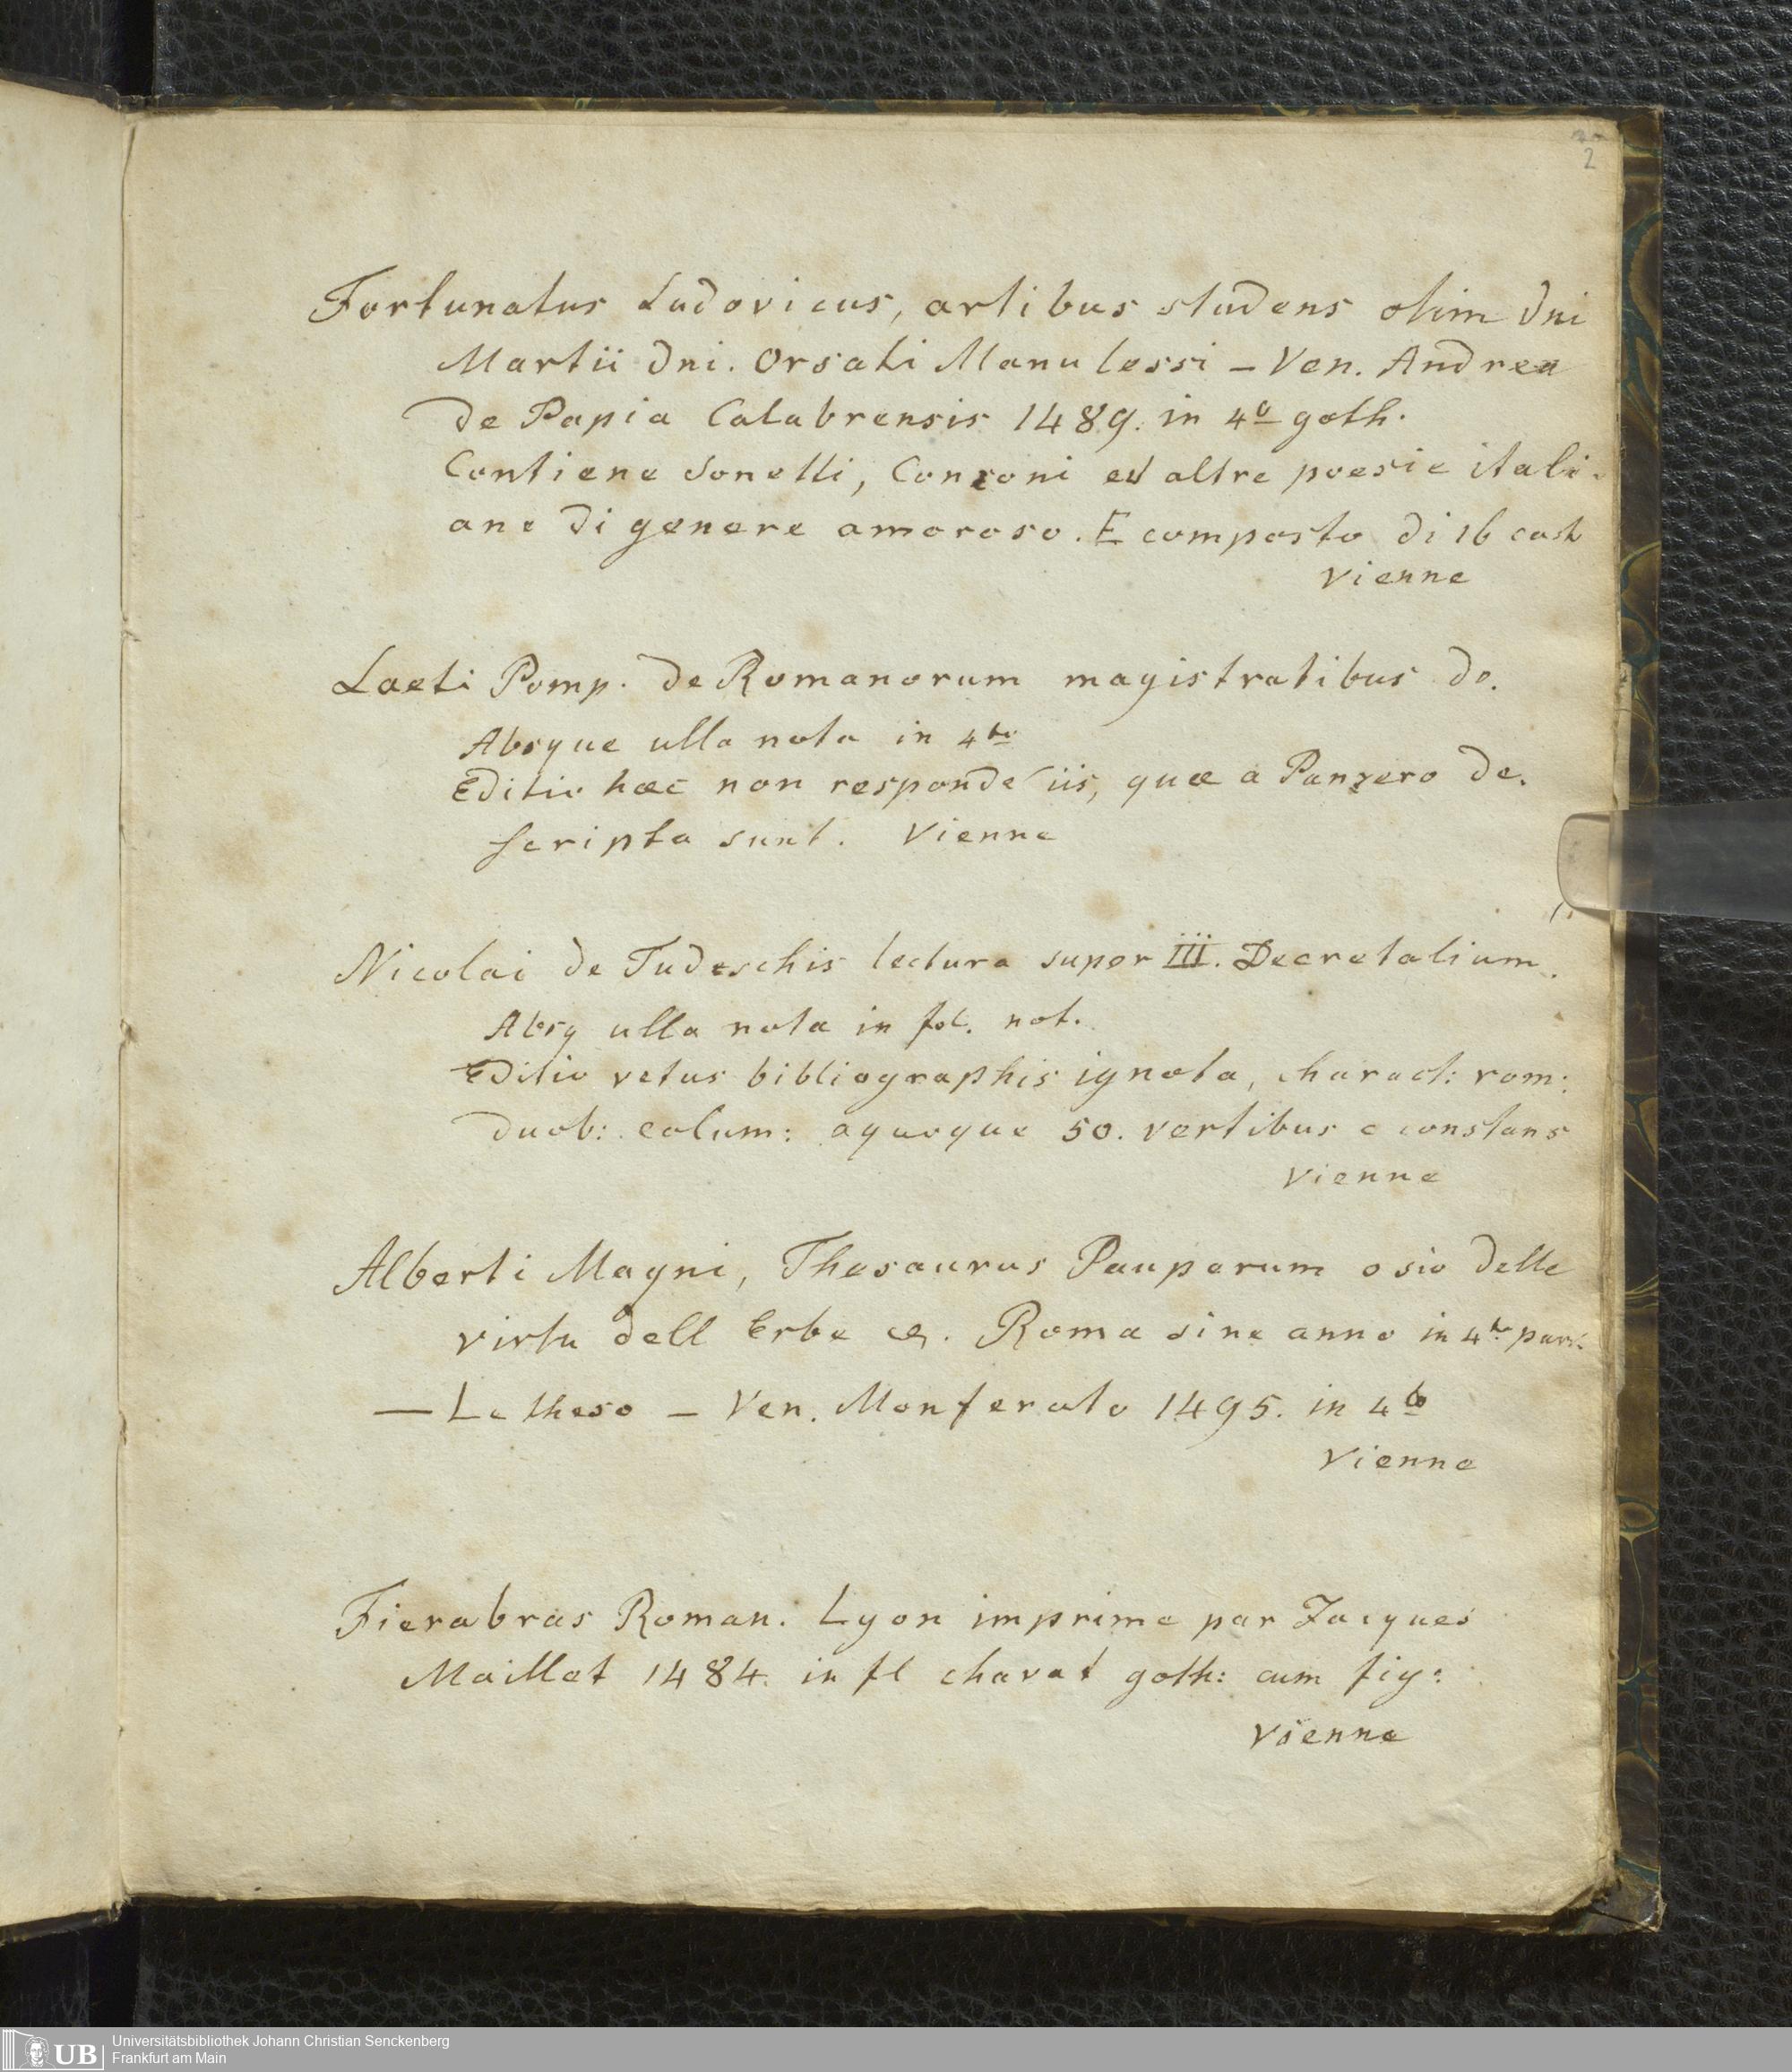 2
Fortunatus Ludovicus, artibus studens olim dni
Martii dni. Orsati Manulessi – Ven. Andrea
de Papia Calabrensis 1489. in 4º goth.
Contiene Sonetti, Conzoni ed altre poesie itali-
ane di genere amoroso. E composto di 16 cart
Vienne
Laeti Pomp. de Romanorum magistratibus do.
Absque ulla nota in 4to
Editio haec non responde iis, quae a Panzero de.
scripta sunt. Vienne
Nicolai de Tudeschis lectura super III. Decretalium.
Absq ulla nota in fol. not.
Editio vetus bibliographis ignota, charact: rom:
duob: colum: aquoque 50. vertibus e constans
Vienne
Alberti Magni, Thesaurus Pauperum osio delle
virtu dell Erbe &. Roma sine anno in 4to
— Le theso – Ven. Monferato 1495. in 4to
Vienne
Fierabras Roman. Lyon imprime par Jacques
Maillet 1484. in fl charat goth: cum fig:
Vienne
UB Universitätsbibliothek Johann Christian Senckenberg
Frankfurt am Main